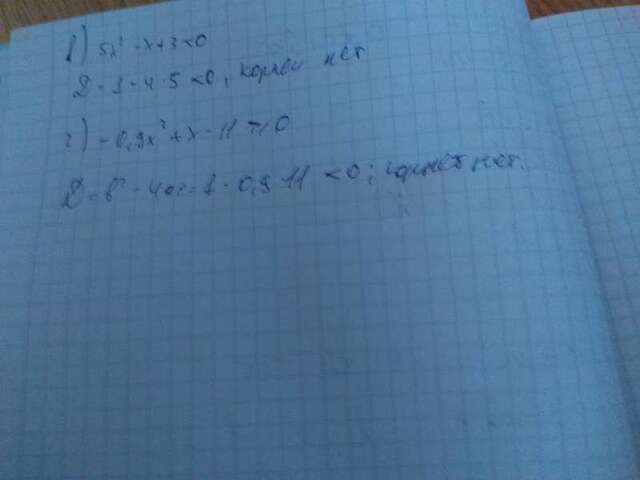 в) 5x² - x + 3 < 0
D = 1 - 4 · 5 < 0; корней нет
г) - 0,9x² + x - 11 ≥ 0
D = b² - 4ac = 1 - 0,9 · 11 < 0; корней нет.